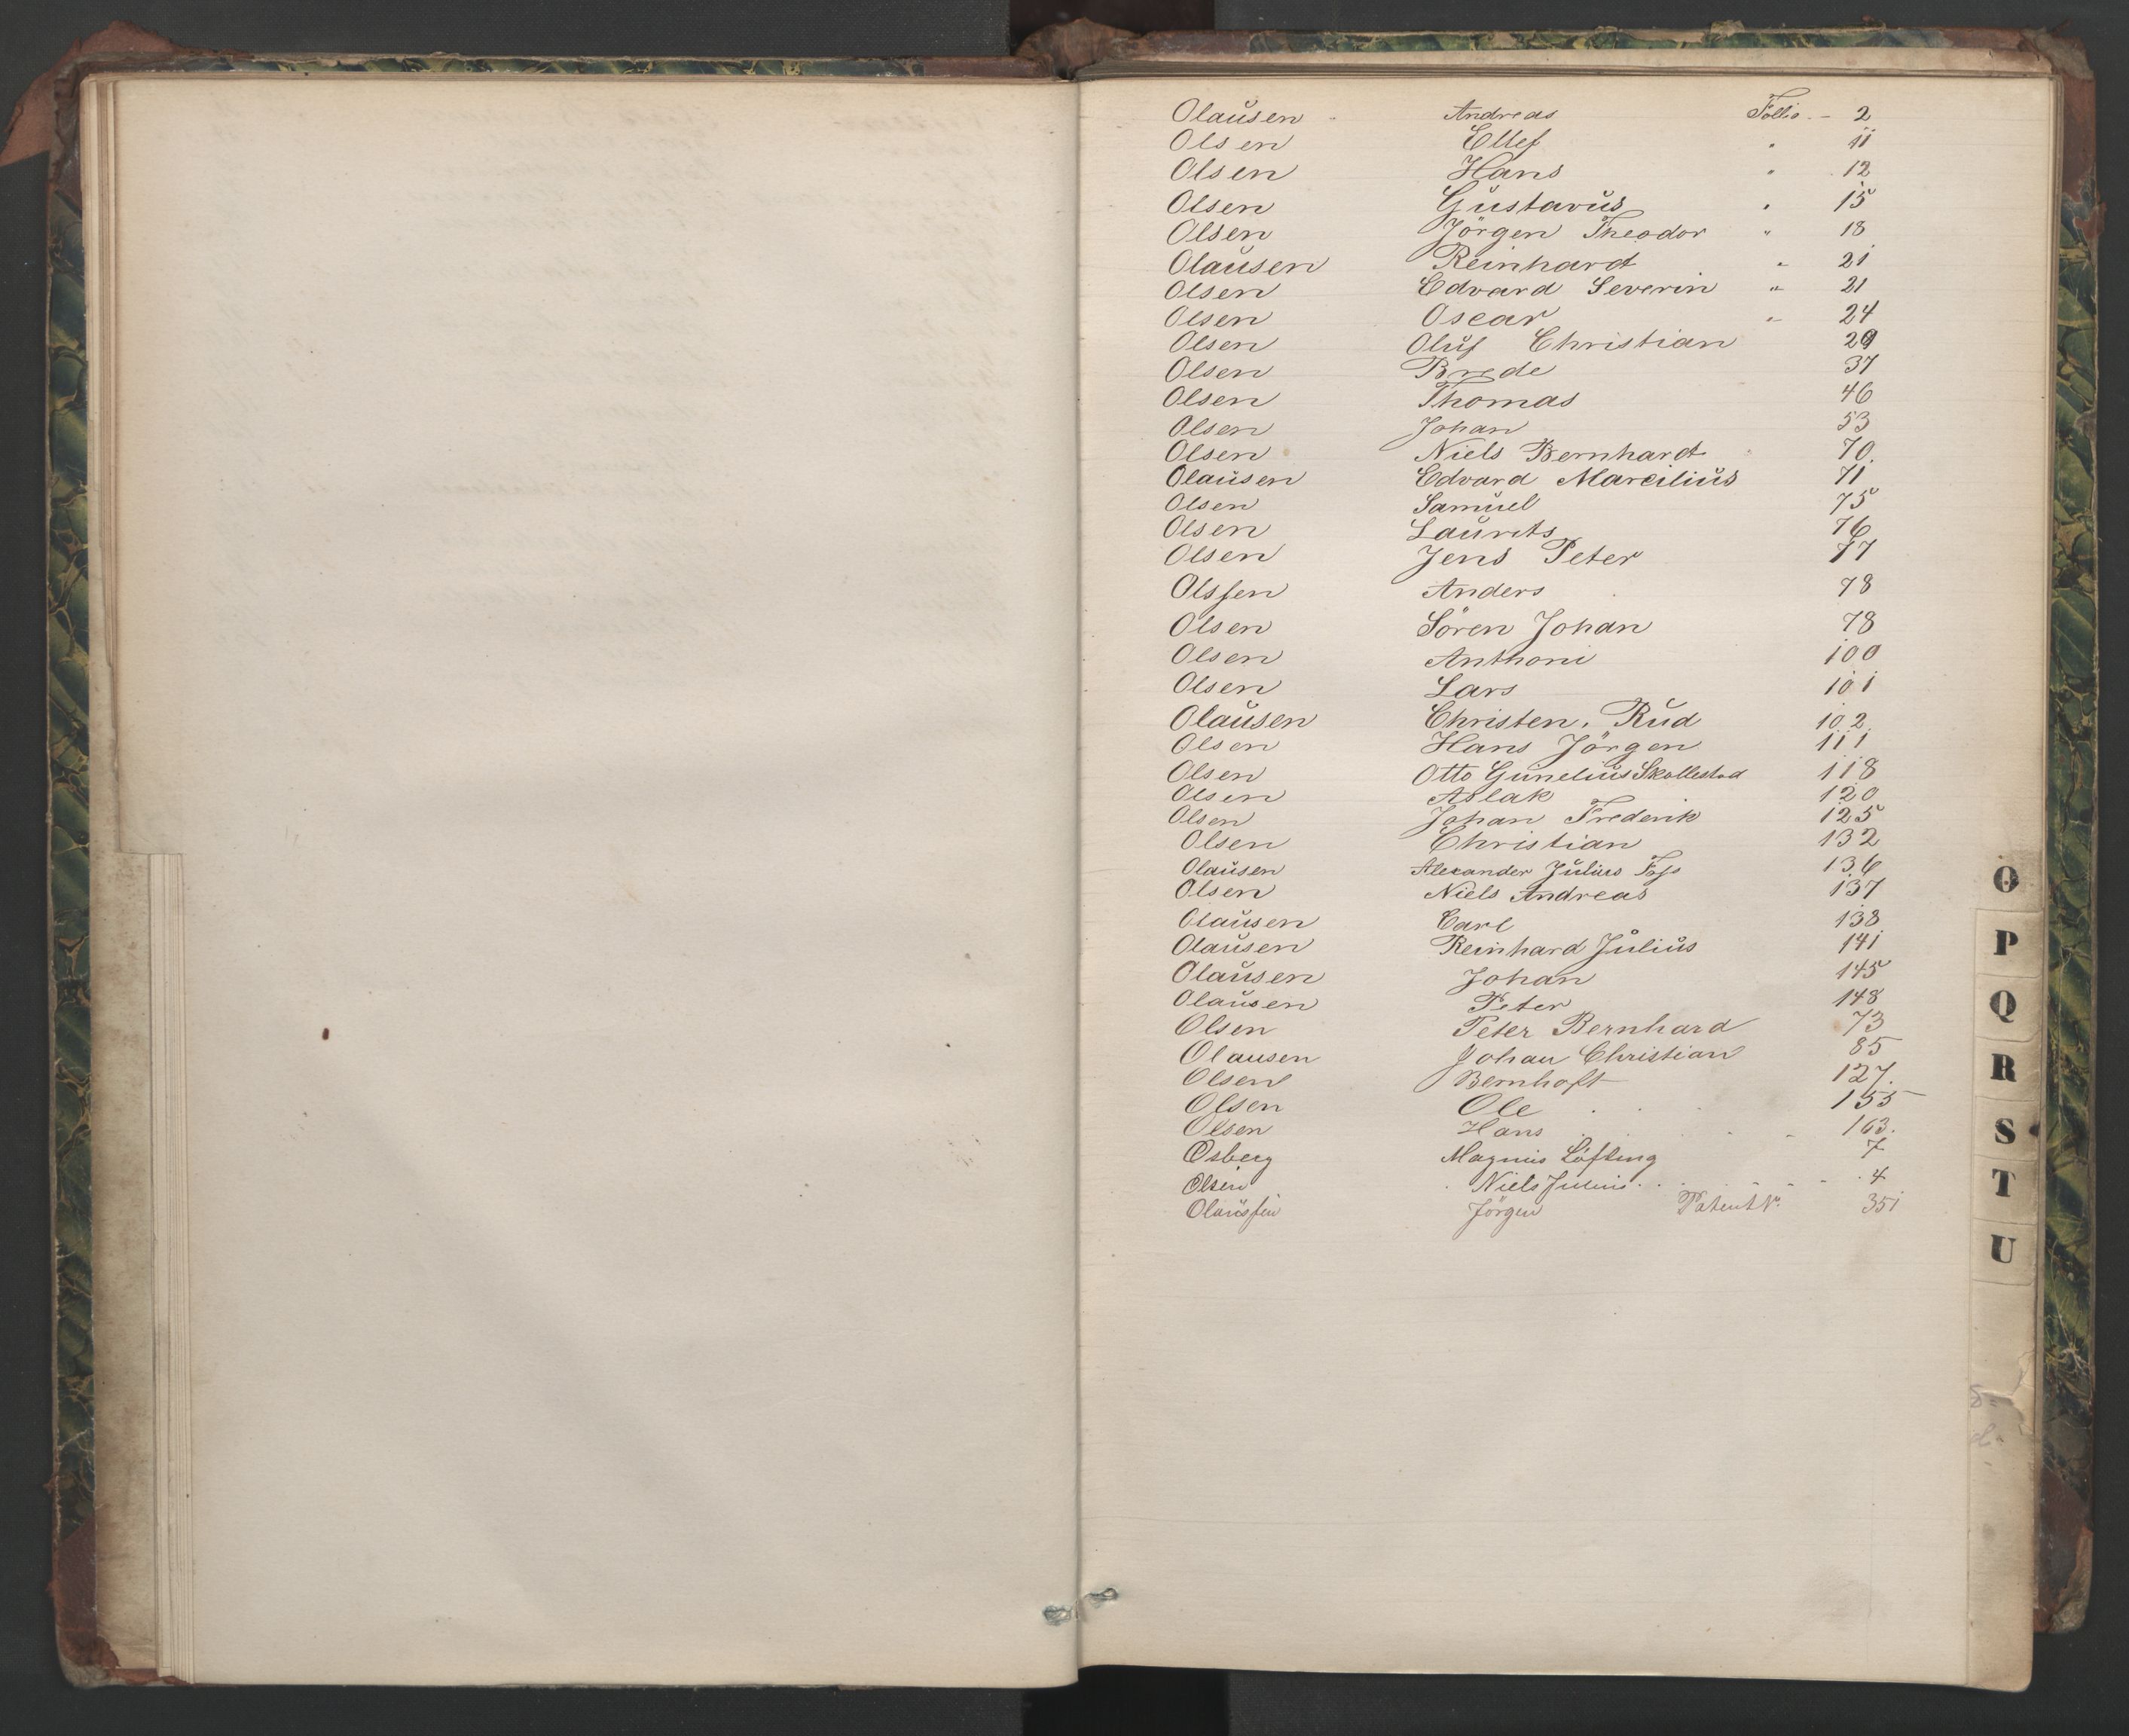 Olausen Andreas Follio - 2
Olsen Ellef " 11
Olsen Hans " 12
Olsen Gustavus " 15
Olsen Jörgen Theodor " 18
Olausen Reinhardt " 21
Olsen Edvard Severin " 21
Olsen Oscar " 24
Olsen Oluf Christian 29
Olsen Brede 37
Olsen Thomas 46
Olsen Johan 53
Olsen Niels Bernhardt 70.
Olausen Edvard Marcilius 71
Olsen Samuel 75
Olsen Laurits 76
Olsen Jens Peter 77
Olssen Anders 78
Olsen Sören Johan 78
Olsen Anthoni 100
Olsen Lars 101
Olausen Christen. Rud 102
Olsen Hans Jörgen 111
Olsen Otto Gunelius Skollestad 118
Olsen Aslak 120
Olsen Johan Frederik 125
Olsen Christian 132
Olausen Alexander Julius Foss 136
Olsen Niels Andreas 137
Olausen Carl 138
Olausen Reinhard Julius 141
Olausen Johan 145
Olausen Peter 148
Olsen Peter Bernhard 73
Olausen Johan Christian 85
Olsen Bernhoft 127.
Olsen Ole 155
Olsen Hans 163.
Osberg Magnus Löfling 7
Olsen Niels Julius 4
Olaussen Jörgen Patent Nr. 351
O
P
Q
R
S
T
U